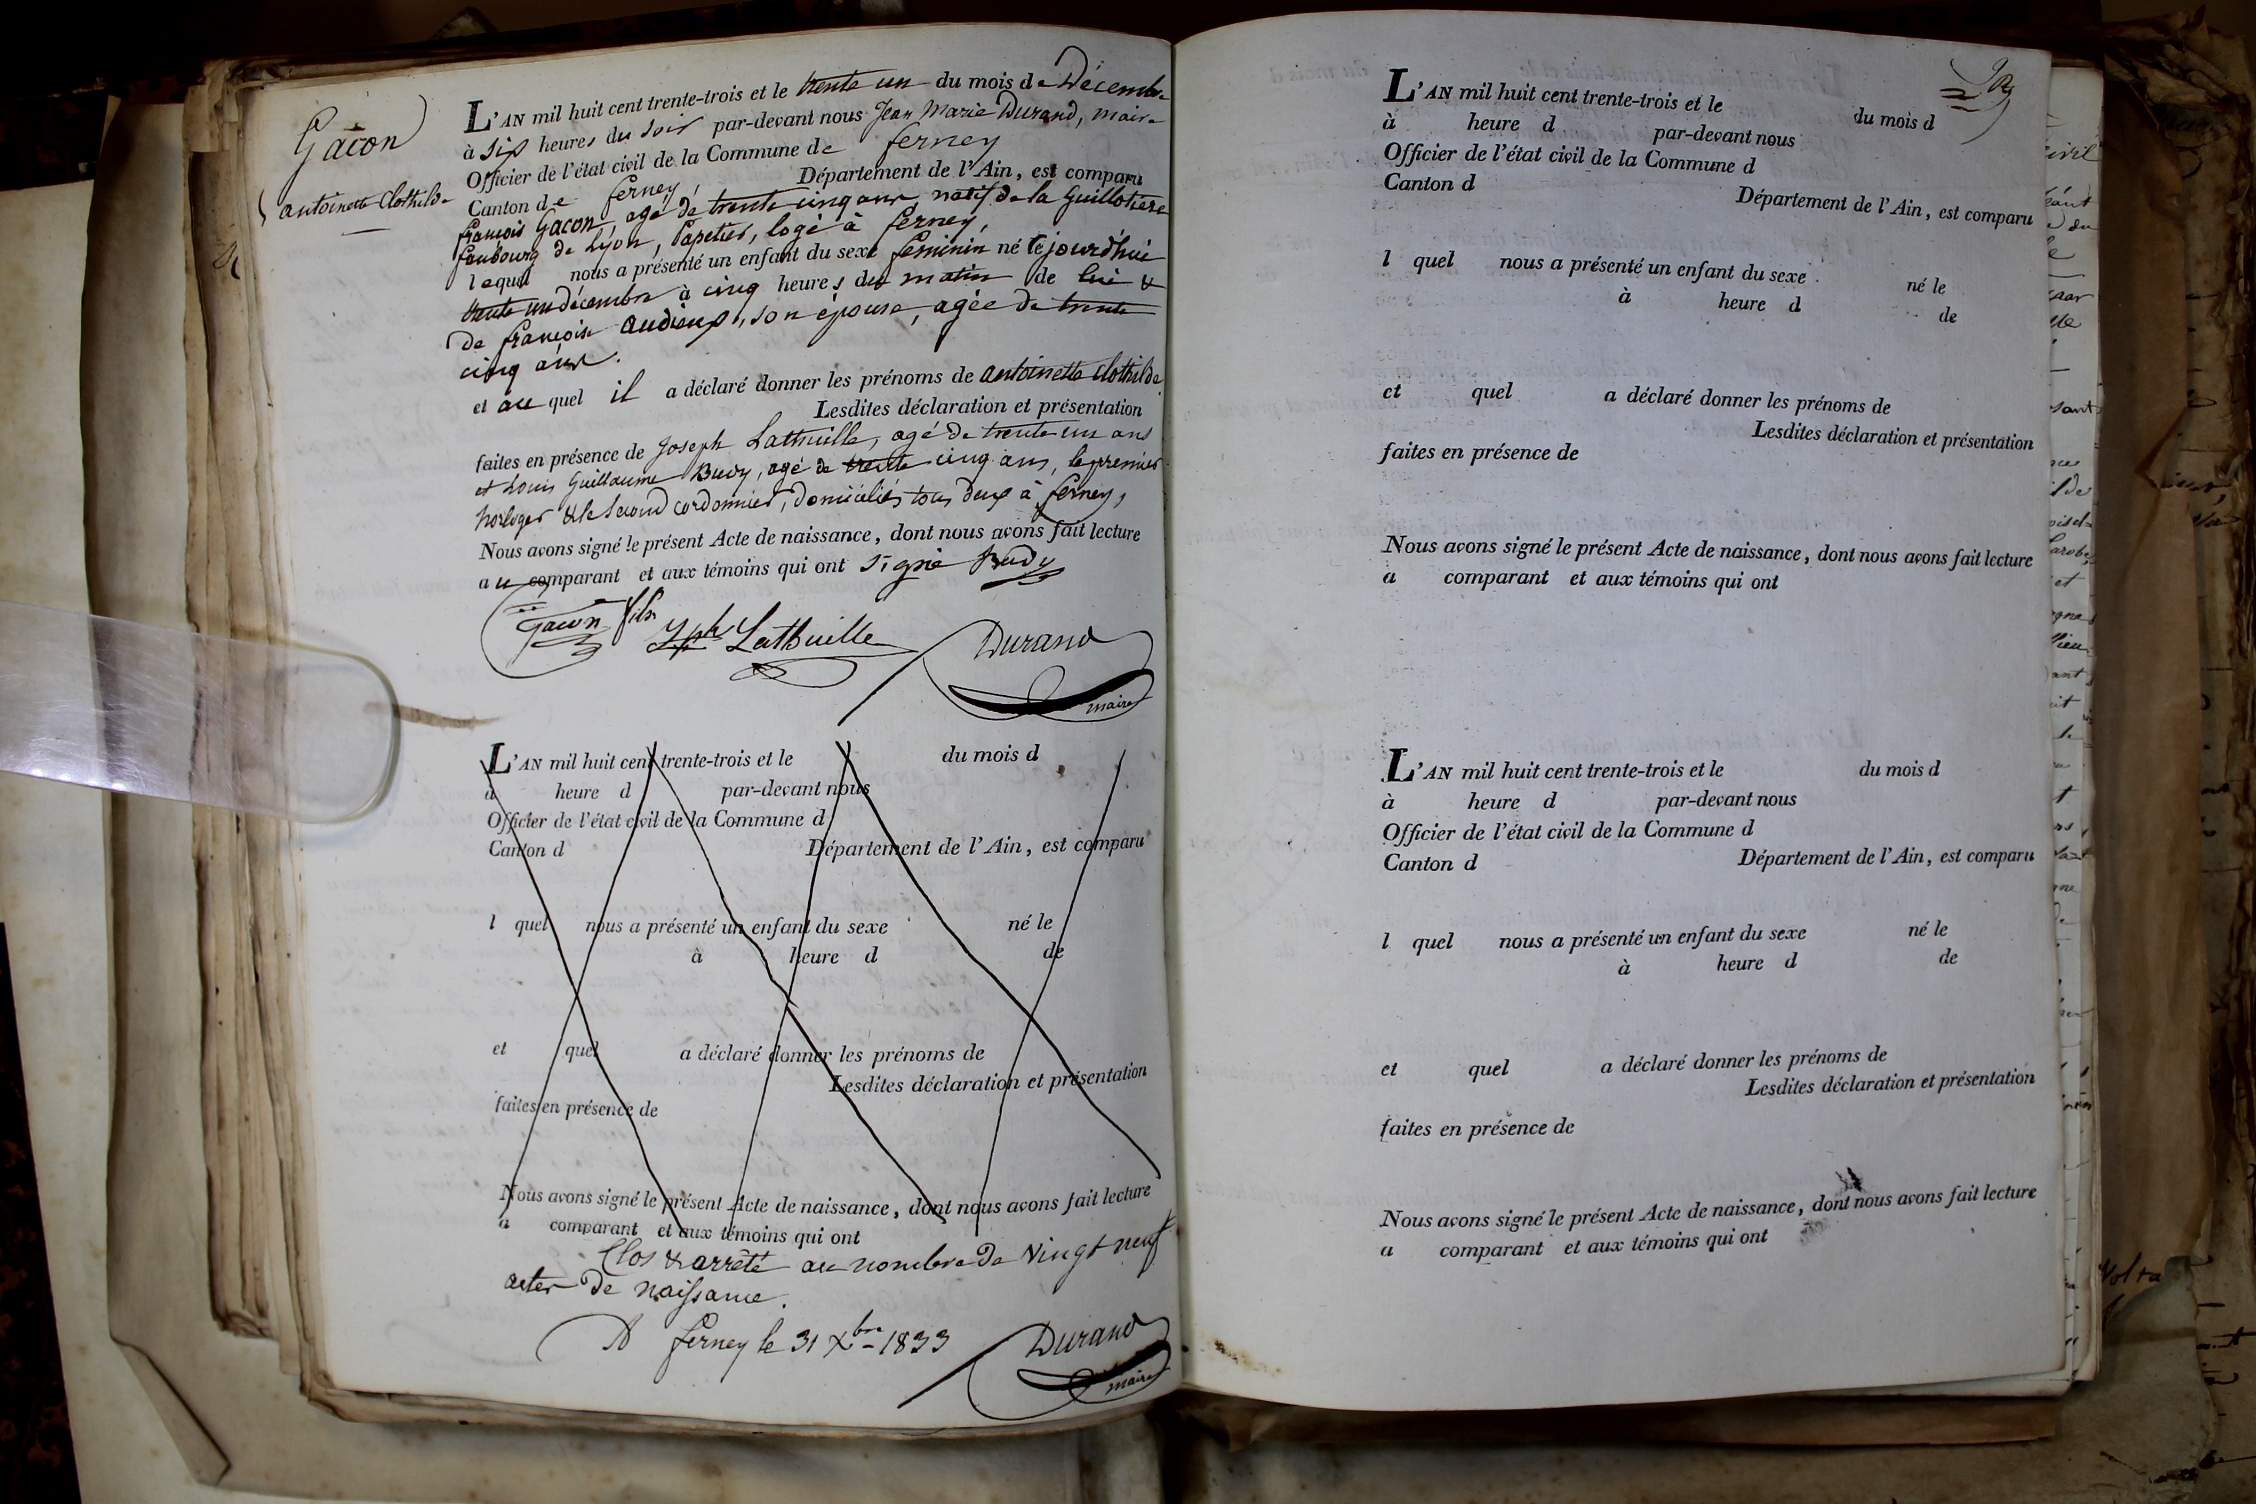 Gacon
antoinette Clothilde
L'AN mil huit cent trente-trois et le trente un du mois de Décembre
à six heures du soir par-devant nous Jean Marie Durand, maire
Officier de l'état civil de la Commune de ferney
Canton de ferney, Département de l'Ain, est comparu
françois Gacon, agé de trente cinq ans natif de la Guillotière
faubourg de Lyon, Papetier, logé à ferney,
lequel nous a présenté un enfant du sexe féminin né le jourd'hui
trente un décembre à cinq heures du matin de lui &
de françoise audieux, son épouse, agée de trente
cinq ans.
et au quel il a déclaré donner les prénoms de antoinette Clothilde
Lesdites déclaration et présentation
faites en présence de Joseph Lathuille, agé de trente un ans
et Louis Guillaume Budy, agé de trente cinq ans, le premier
horloger & le second cordonnier, domiciliés tous deux à ferney,
Nous avons signé le présent Acte de naissance, dont nous avons fait lecture
au comparant et aux témoins qui ont signé Budy
Gacon fils Jph Lathuille Durand
maire
L'AN mil huit cent trente-trois et le du mois d
à heure d par-devant nous
Officier de l'état civil de la Commune d
Canton d Département de l'Ain, est comparu
l quel nous a présenté un enfant du sexe né le
à heure d de
et quel a déclaré donner les prénoms de
Lesdites déclaration et présentation
faites en présence de
Nous avons signé le présent Acte de naissance, dont nous avons fait lecture
a comparant et aux témoins qui ont
Clos & arrêté au nombre de vingt neuf
actes de naissance.
A ferney le 31 Xbre 1833
Durand
maire
L'AN mil huit cent trente-trois et le du mois d
à heure d par-devant nous
Officier de l'état civil de la Commune d
Canton d Département de l'Ain, est comparu
l quel nous a présenté un enfant du sexe né le
à heure d de
et quel a déclaré donner les prénoms de
Lesdites déclaration et présentation
faites en présence de
Nous avons signé le présent Acte de naissance, dont nous avons fait lecture
a comparant et aux témoins qui ont
L'AN mil huit cent trente-trois et le du mois d
à heure d par-devant nous
Officier de l'état civil de la Commune d
Canton d Département de l'Ain, est comparu
l quel nous a présenté un enfant du sexe né le
à heure d de
et quel a déclaré donner les prénoms de
Lesdites déclaration et présentation
faites en présence de
Nous avons signé le présent Acte de naissance, dont nous avons fait lecture
a comparant et aux témoins qui ont